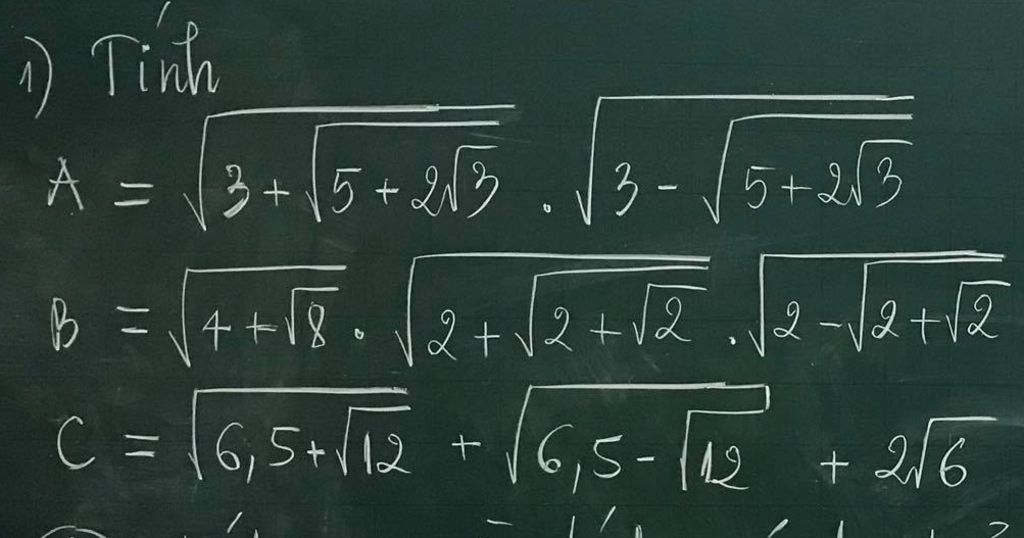 1) Tính
A = √(3 + √(5 + 2√3)) . √(3 - √(5 + 2√3))
B = √(4 + √8) . √(2 + √(2 + √2)) . √(2 - √(2 + √2))
C = √(6,5 + √12) + √(6,5 - √12) + 2√6